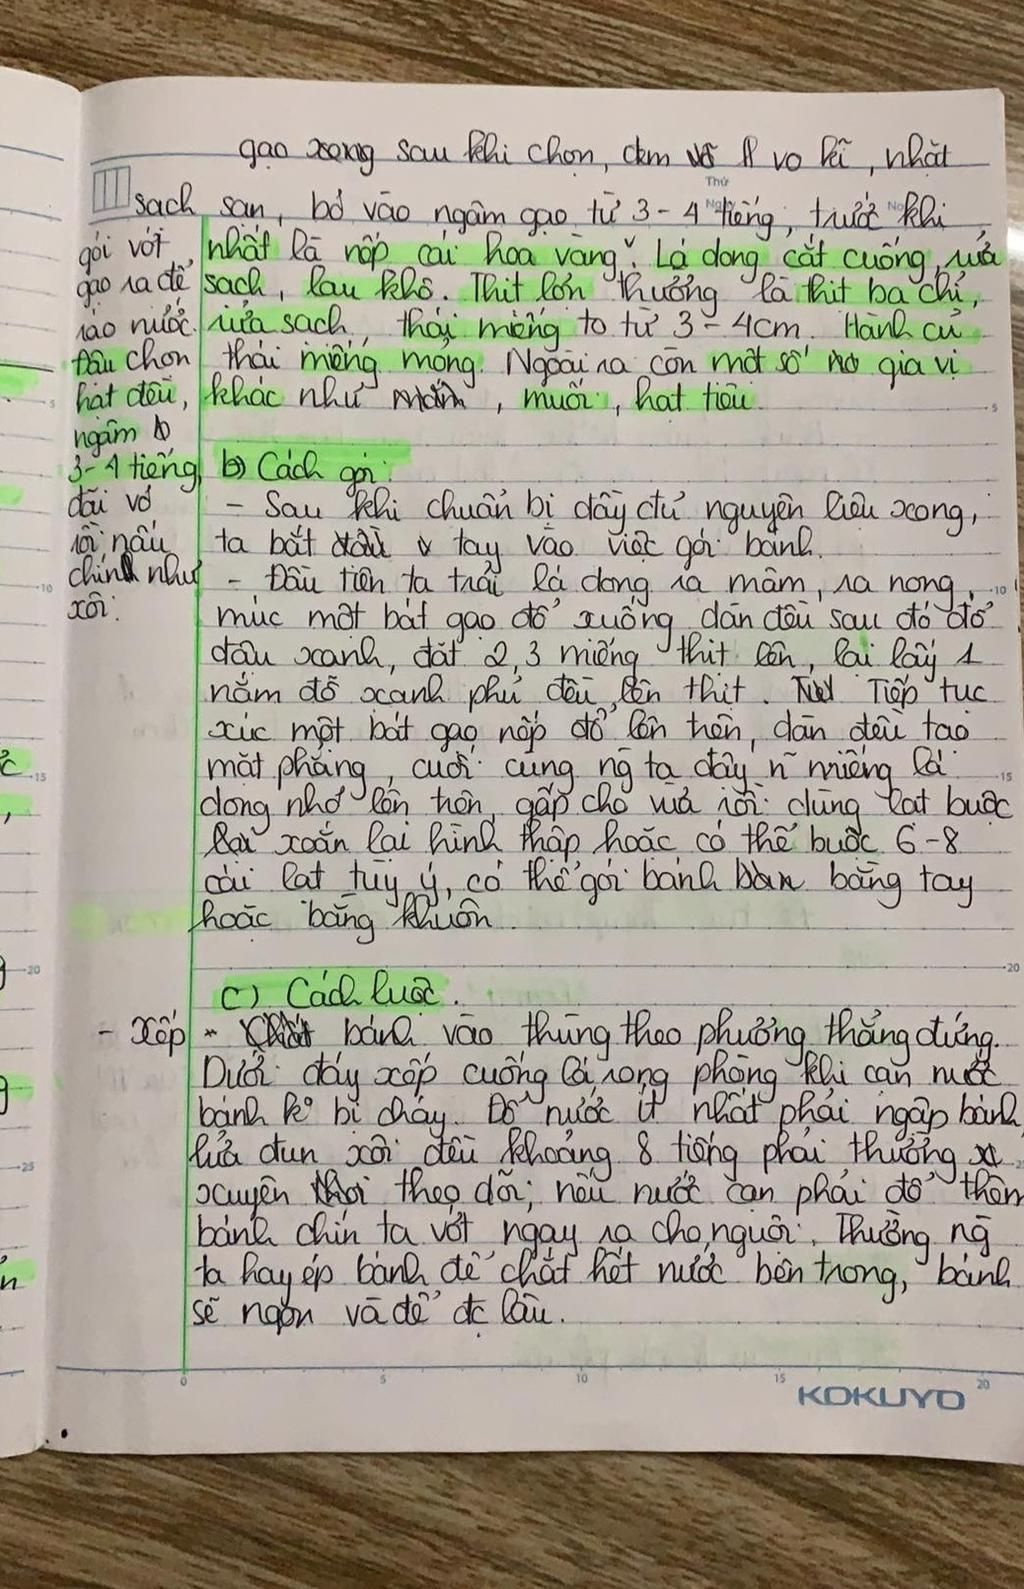 gạo xong sau khi chọn, đem vo kĩ, nhặt
sạch sạn, bỏ vào ngâm gạo từ 3-4 tiếng, trước khi
Thứ
Ngày
No
gói vớt
gạo ra để
ráo nước.
Đậu chọn
hạt đều,
ngâm
3-4 tiếng,
đãi vỏ
rồi nấu
chín như
xôi.
nhất là nếp cái hoa vàng. Lá dong cắt cuống, rửa
sạch, lau khô. Thịt lợn thường là thịt ba chỉ,
rửa sạch thái miếng to từ 3-4cm. Hành củ
thái miếng mỏng. Ngoài ra còn một số gia vị
khác như mắm, muối, hạt tiêu
b) Cách gói:
- Sau khi chuẩn bị đầy đủ nguyên liệu xong,
ta bắt đầu tay vào việc gói bánh.
- Đầu tiên ta trải lá dong ra mâm, ra nong,
múc một bát gạo đổ xuống dàn đều sau đó đổ
đậu xanh, đặt 2,3 miếng thịt lên, lại lấy 1
nắm đỗ xanh phủ đều lên thịt. Tiếp tục
xúc một bát gạo nếp đổ lên trên, dàn đều tạo
mặt phẳng, cuối cùng ng ta đậy n~ miếng lá
dong nhỏ lên trên, gấp cho vừa rồi dùng lạt buộc
xoắn lại hình thập hoặc có thể buộc 6-8
cái lạt tùy ý, có thể gói bánh bằng tay
hoặc bằng khuôn.
c) Cách luộc.
- Xếp - bánh vào thùng theo phương thẳng đứng.
Dưới đáy xếp cuống lá rong phòng khi cạn nước
bánh k° bị cháy. Đổ nước ít nhất phải ngập bánh,
lửa đun xôi đều khoảng 8 tiếng phải thường
xuyên theo dõi, nếu nước cạn phải đổ thêm
bánh chín ta vớt ngay ra cho nguội. Thường ng
ta hay ép bánh để chắt hết nước bên trong, bánh
sẽ ngon và để đc lâu.
0 5 10 15 20
KOKUYO